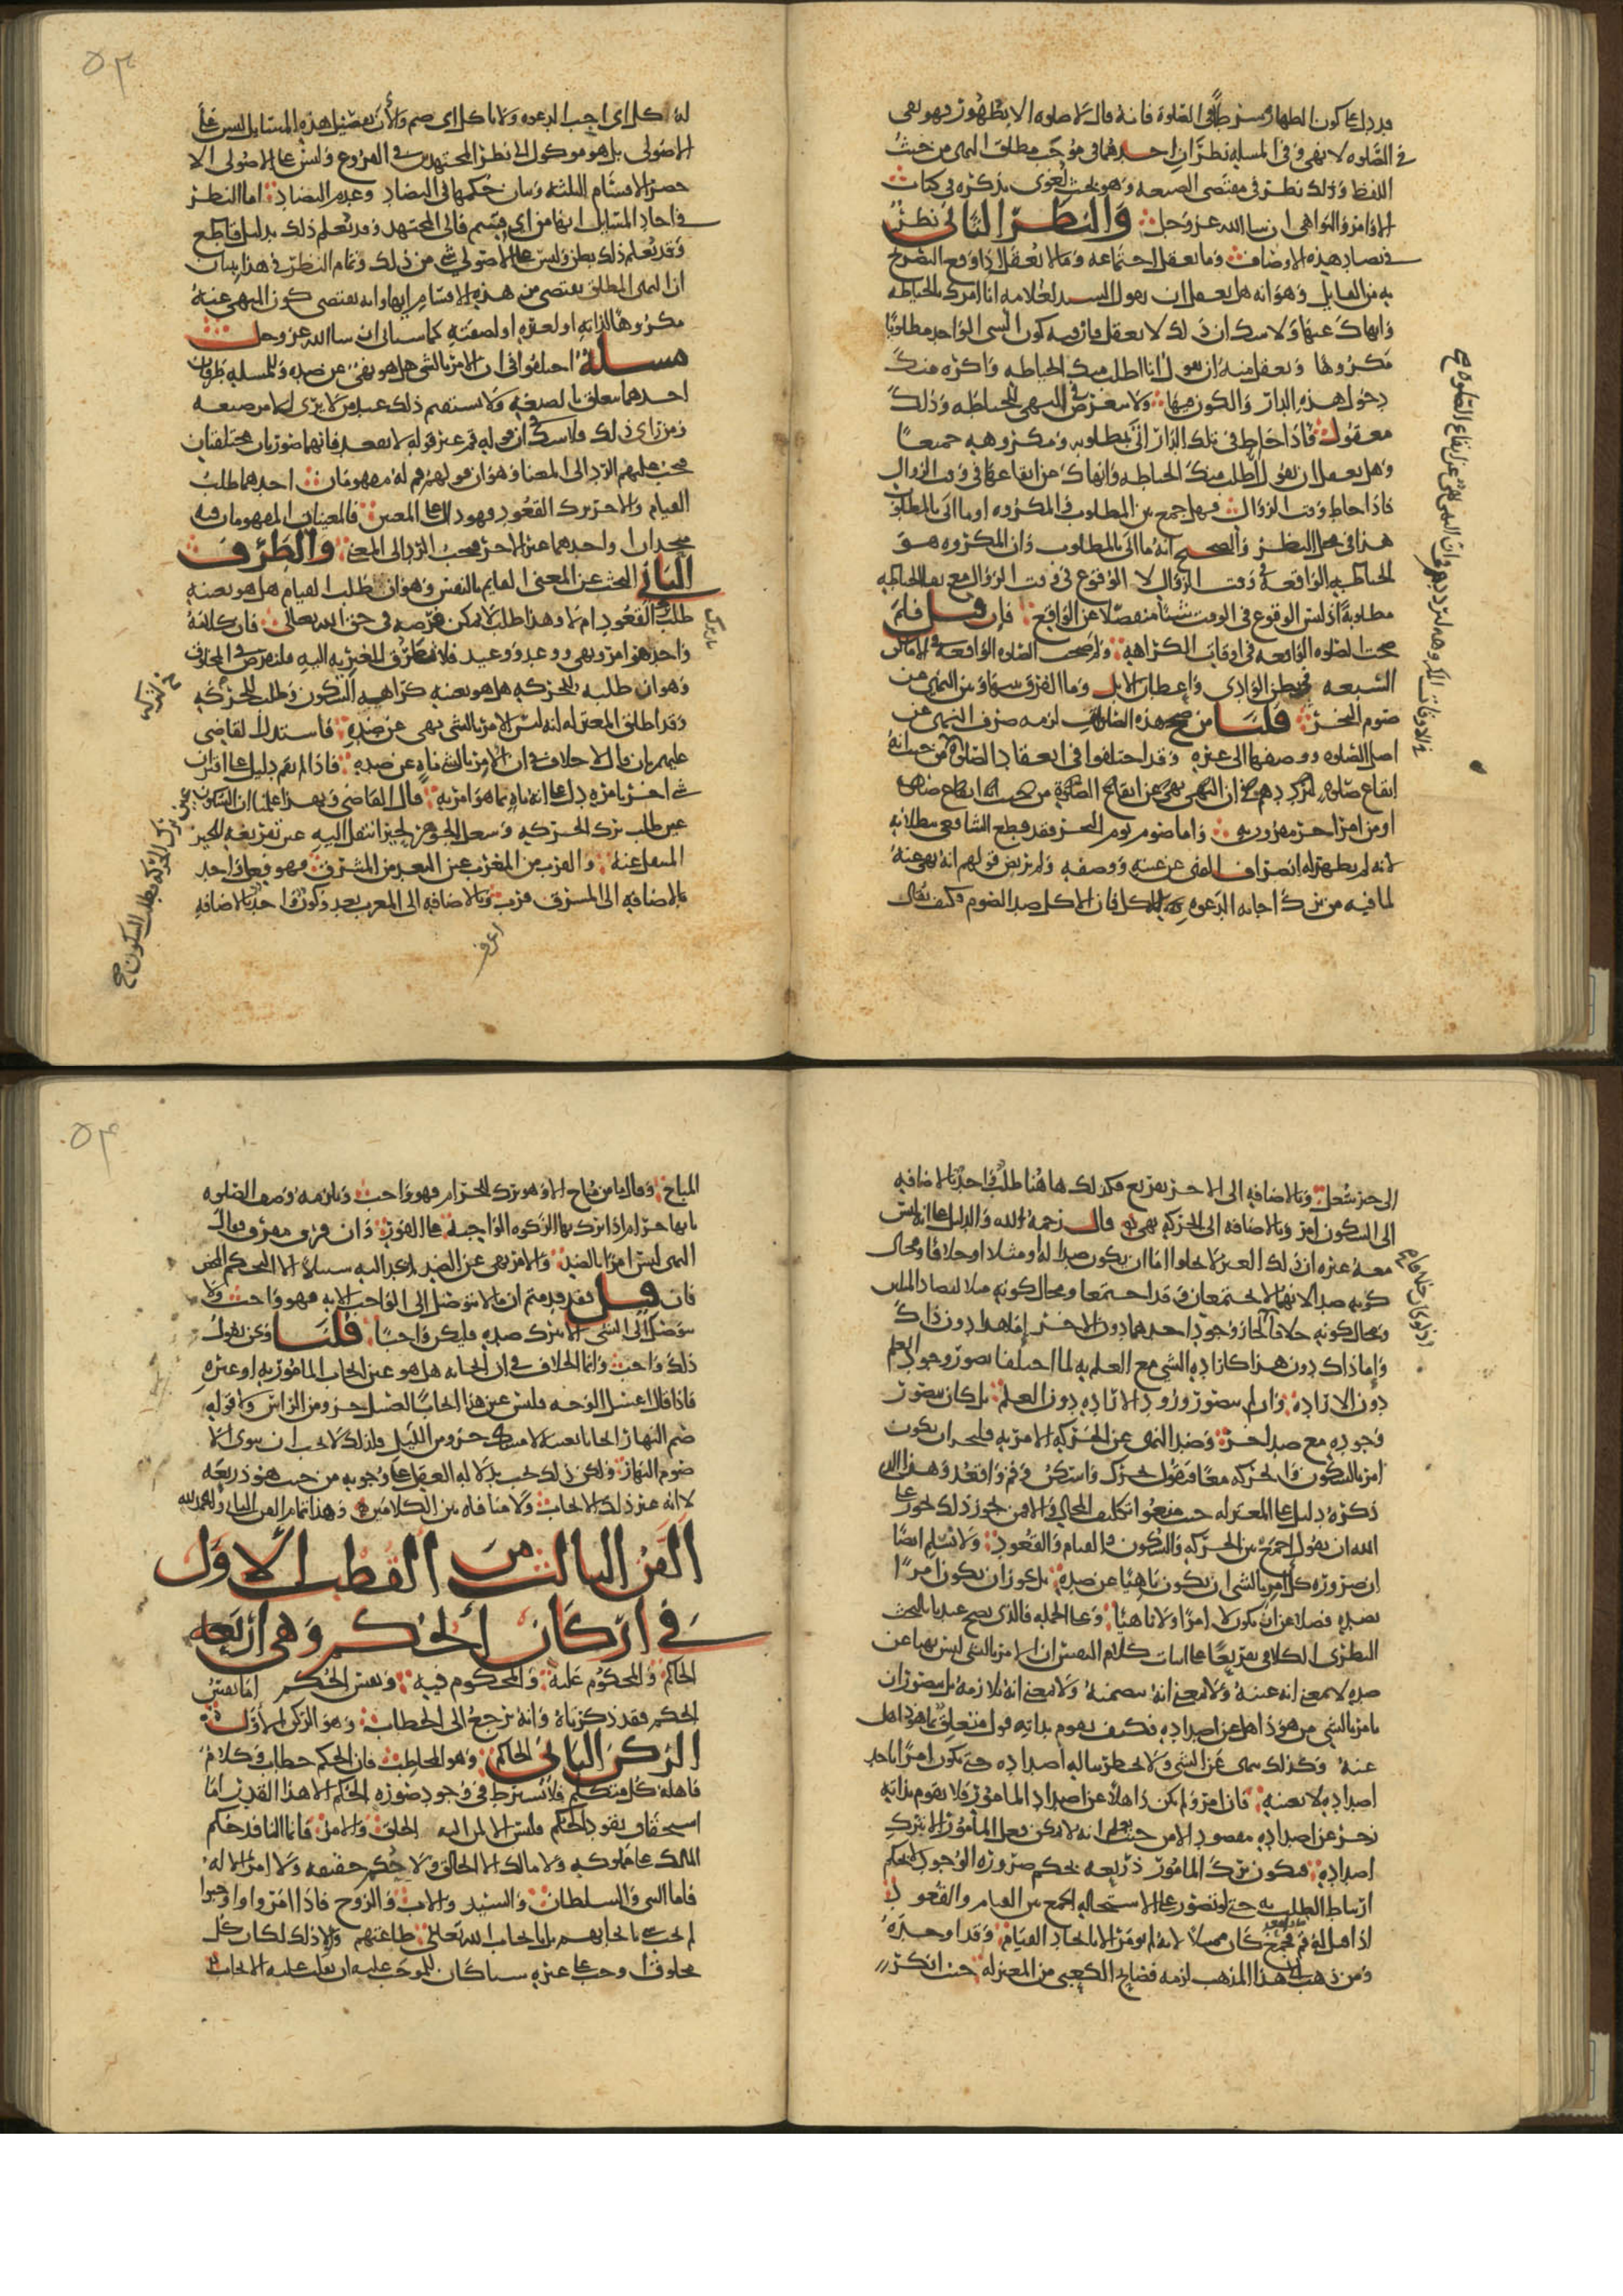 قد دل على كون الطهارة شرطا في الصلوة فانه قال لا صلوه الا بطهور فهو نهى
في الصلوه لا نهى وفي المسله نظران احدهما في موجب مطلق النهي من حيث
اللفظ وذلك نظر في مقتضى الصيغه وهو بحث لغوى نذكره في كتاب
الاوامر والنواهي ان سا الله عز وجل والنظر الثاني نظر
في تضاد هذه الاوصاف وما يعقل اجتماعه وما لا يعقل اذا وقع التصريح
به من القايل وهو انه هل يعقل ان يقول السيد لغلامه انا امرك بالخياطه
وانهاك عنها ولا شك ان ذلك لا يعقل فانه فيه كون الشى الواحد مطلوبا
مكروها ويعقل منه ان يقول انا اطلب منك الخياطه واكره منك
دخول هذه الدار والكون فيها ولا يتعرض في النهي للخياطه وذلك
معقول فاذا خاط في تلك الدار اتى بمطلوبه ومكروهه جميعا
وهل يعقل ان يقول اطلب منك الخياطه وانهاك عن ايقاعها في وقت الزوال
فاذا خاط وقت الزوال فهل جمع بين المطلوب والمكروه او ما اتى بالمطلوب
هذا في محل النظر والصحيح انه ما اتى بالمطلوب وان المكروه هو
الخياطه الواقعه في وقت الزوال لا الوقوع في وقت الزوال مع بقا الخياطه
مطلوبة اذ ليس الوقوع في الوقت شيئا منفصلا عن الواقع فان قيل فلم
صحت الصلوه الواقعه في اوقات الكراهيه ولم صحت الصلوه الواقعه في الاماكن
السبعه من بطن الوادي واعطان الابل وما الفرق بينها وبين النهي عن
صوم النحر قلنا من صحح هذه الصلوات لزمه صرف النهي عن
اصل الصلوه ووصفها الى غيره وقد اختلفوا في انعقاد الصلوة من حيث انه
ايقاع صلوة
او من امر اخر مقرون به واما صوم يوم النحر فقد قطع الشافعي ببطلانه
لانه لم يظهر له انصراف النهي عن عينه ووصفه ولم يرتض قولهم انه نهى عنه
لما فيه من ترك اجابه الدعوه بالاكل فان الاكل ضد الصوم فكيف يقال
له كل اى اجب الدعوه ولا تاكل اى صم والآن تفصيل هذه المسايل ليس على
الاصولى بل هو موكول الى نظر المجتهدين في الفروع وليس على الاصولى الا
حصر الاقسام الثلثه وبيان حكمها في التضاد وعدم التضاد اما النظر
في احاد المسايل انها من اى قسم فالى المجتهد وقد يعلم ذلك بدليل قاطع
وقد يعلم ذلك بظن وليس على الاصولي شى من ذلك وتمام النظر في هذا ببيان
ان النهي المطلق يقتضى من هذه الاقسام ايها وانه يقتضى كون المنهي عنه
مكروها لذاته او لغيره او لصفته كما سياتى ان سا الله عز وجل
مسله اختلفوا في ان الامر بالشى هل هو نهى عن ضده وللمسله طرفان
احدهما يتعلق بالصيغه ولا يستقيم ذلك عند من لا يرى للامر صيغه
ومن راى ذلك فلا شك في ان قوله قم غير قوله لا تقعد فانهما صورتان مختلفتان
فيجب عليهم الرد الى المعنى وهو ان قولهم قم له مفهومان احدهما طلب
القيام والاخر ترك القعود فهو دال على المعنيين فالمعنيان المفهومان منه
متحدان او احدهما غير الاخر فيجب الرد الى المعنى والطرف
الثاني البحث عن المعنى القايم بالنفس وهو ان طلب القيام هل هو بعينه
طلب القعود ام لا وهذا طلب لا يمكن فرضه في حق الله تعالى فان كلامه
واحد هو امر ونهي ووعد ووعيد فلا تتطرق الغيريه اليه فلنفرض في المخلوق
وهو ان طلبه للحركه هل هو بعينه كراهيه السكون وطلب للحركه
وقد اطلق المعتزله انه ليس الامر بالشى نهى عن ضده فاستدل القاضي
عليهم بان قال لا خلاف في ان الامر بالشى ناه عن ضده فاذا لم يقم دليل على اقتران
شى اخر بامره دل على انه ناه بما هو امر به قال القاضي وبهذا علمنا ان السكون
عين طلب ترك الحركه وشغل الجوهر لحيز انتقل اليه عين تفريغه للحيز
المنتقل عنه والقرب من المغرب عين البعد من المشرق فهو فعل واحد
بالاضافه الى المشرق قرب وبالاضافه الى المغرب بعد وكون واحد بالاضافه
الى حيز شغل وبالاضافه الى الاخر تفريغ فكذلك هاهنا طلب واحد بالاضافه
الى السكون امر وبالاضافه الى الحركه نهى قال رحمه الله والدليل على انه ليس
معه غيره ان ذلك الغير لا يخلو اما ان يكون ضدا له او مثلا او خلافا ومحال
كونه ضدا لانهما لا يجتمعان وقد اجتمعا ومحال كونه مثلا لتضاد المثلين
ومحال كونه خلافا اذ لجاز وجود احدهما دون الاخر اما هذا دون ذاك
واما ذاك دون هذا كاراده الشى مع العلم به لما اختلفا تصور وجود العلم
دون الاراده وان لم يتصور وجود الاراده دون العلم بل كان يتصور
وجوده مع ضد الاخر وضد النهى عن الحركه الامر به فليجز ان يكون
امرا بالسكون والحركه معا فيقول تحرك واسكن وقم واقعد وهذا الذي
ذكره دليل على المعتزله حيث منعوا تكليف المحال والا فمن يجوز ذلك يجوز على
الله ان يقول اجمع بين الحركه والسكون والقيام والقعود ولا نسلم ايضا
ان ضروره كل امر بالشى ان يكون ناهيا عن ضده بل يجوز ان يكون امرا
بضده فضلا عن ان يكون لا امرا ولا ناهيا وعلى الجمله فالذي يصح عندنا بالبحث
النظرى الكلامي تفريعا على اثبات كلام النفس ان الامر بالشى ليس نهيا عن
ضده لا بمعنى انه عينه ولا بمعنى انه يتضمنه ولا بمعنى انه يلازمه بل يتصور ان
يامر بالشي من هو ذاهل عن اضداده فكيف يقوم بذاته قول متعلق بما هو ذاهل
عنه وكذلك ينهى عن الشي ولا يخطر بباله اضداده حتى يكون امرا باحد
اضداده لا بعينه فان امر ولم يكن ذاهلا عن اضداد المامور فلا يقوم بذاته
زجر عن اضداده مقصود الا من حيث يعلم انه لا يمكن فعل المامور الا بترك
اضداده فيكون ترك المامور ذريعه بحكم ضروره الوجود لا بحكم
ارتباط الطلب به حتى لو تصور على الاستحاله الجمع بين القيام والقعود
اذا قيل له قم فجمع كان ممتثلا لانه لم يومر الا بايجاد القيام وقد اوجده
ومن ذهب الى هذا المذهب لزمه فضايح الكعبي من المعتزله حيث انكر
المباح وقال ما من مباح الا وهو ترك لحرام فهو واجب ويلزمه وصف الصلوه
بانها حرام اذا ترك بها الزكوه الواجبه على الفور وان فرق مفرق فقال
النهى ليس امرا بالضد والامر نهى عن الضد لم يجد اليه سبيلا الا التحكم المحض
فان قيل فقد قدمتم ان ما لا يتوصل الى الواجب الا به فهو واجب ولا
يتوصل الى الشى الا بترك ضده فليكن واجبا قلنا ونحن نقول
ذلك واجب وانما الخلاف في ان ايجابه هل هو عين ايجاب المامور به او غيره
فاذا قيل اغسل الوجه فليس عين هذا ايجابا لغسل جزو من الراس ولا قوله
صم النهار ايجابا بعينه لامساك جزو من الليل فلذلك لا يجب ان ينوى الا
صوم النهار ولكن ذلك يجب بدلاله العقل على وجوبه من حيث هو ذريعه
لا انه عين ذلك الايجاب ولا منافاه بين الكلامين وهذا تمام الفن الثاني والحمد لله
الفن الثالث من القطب الاول
في اركان الحكم وهي اربعه
الحاكم والمحكوم عليه والمحكوم فيه ونفس الحكم اما نفس
الحكم فقد ذكرناه وانه يرجع الى الخطاب وهو الركن الاول
الركن الثاني الحاكم وهو المخاطب فان الحكم خطاب وكلام
فاهله كل متكلم فلا يشترط في وجود صوره الحكم الا هذا القدر اما
استحقاق نفوذ الحكم فليس الا لمن اليه الخلق والامر فانما النافذ حكم
المالك على مملوكه ولا مالك الا الخالق ولا حكم حقيقه ولا امر الا له
فاما النبي والسلطان والسيد والاب والزوج فاذا امروا واوجبوا
لم يجب شى بايجابهم بل بايجاب الله تعالى طاعتهم ولولا ذلك لكان كل
مخلوق اوجب على غيره شيئا كان للموجب عليه ان يقلب عليه الايجاب